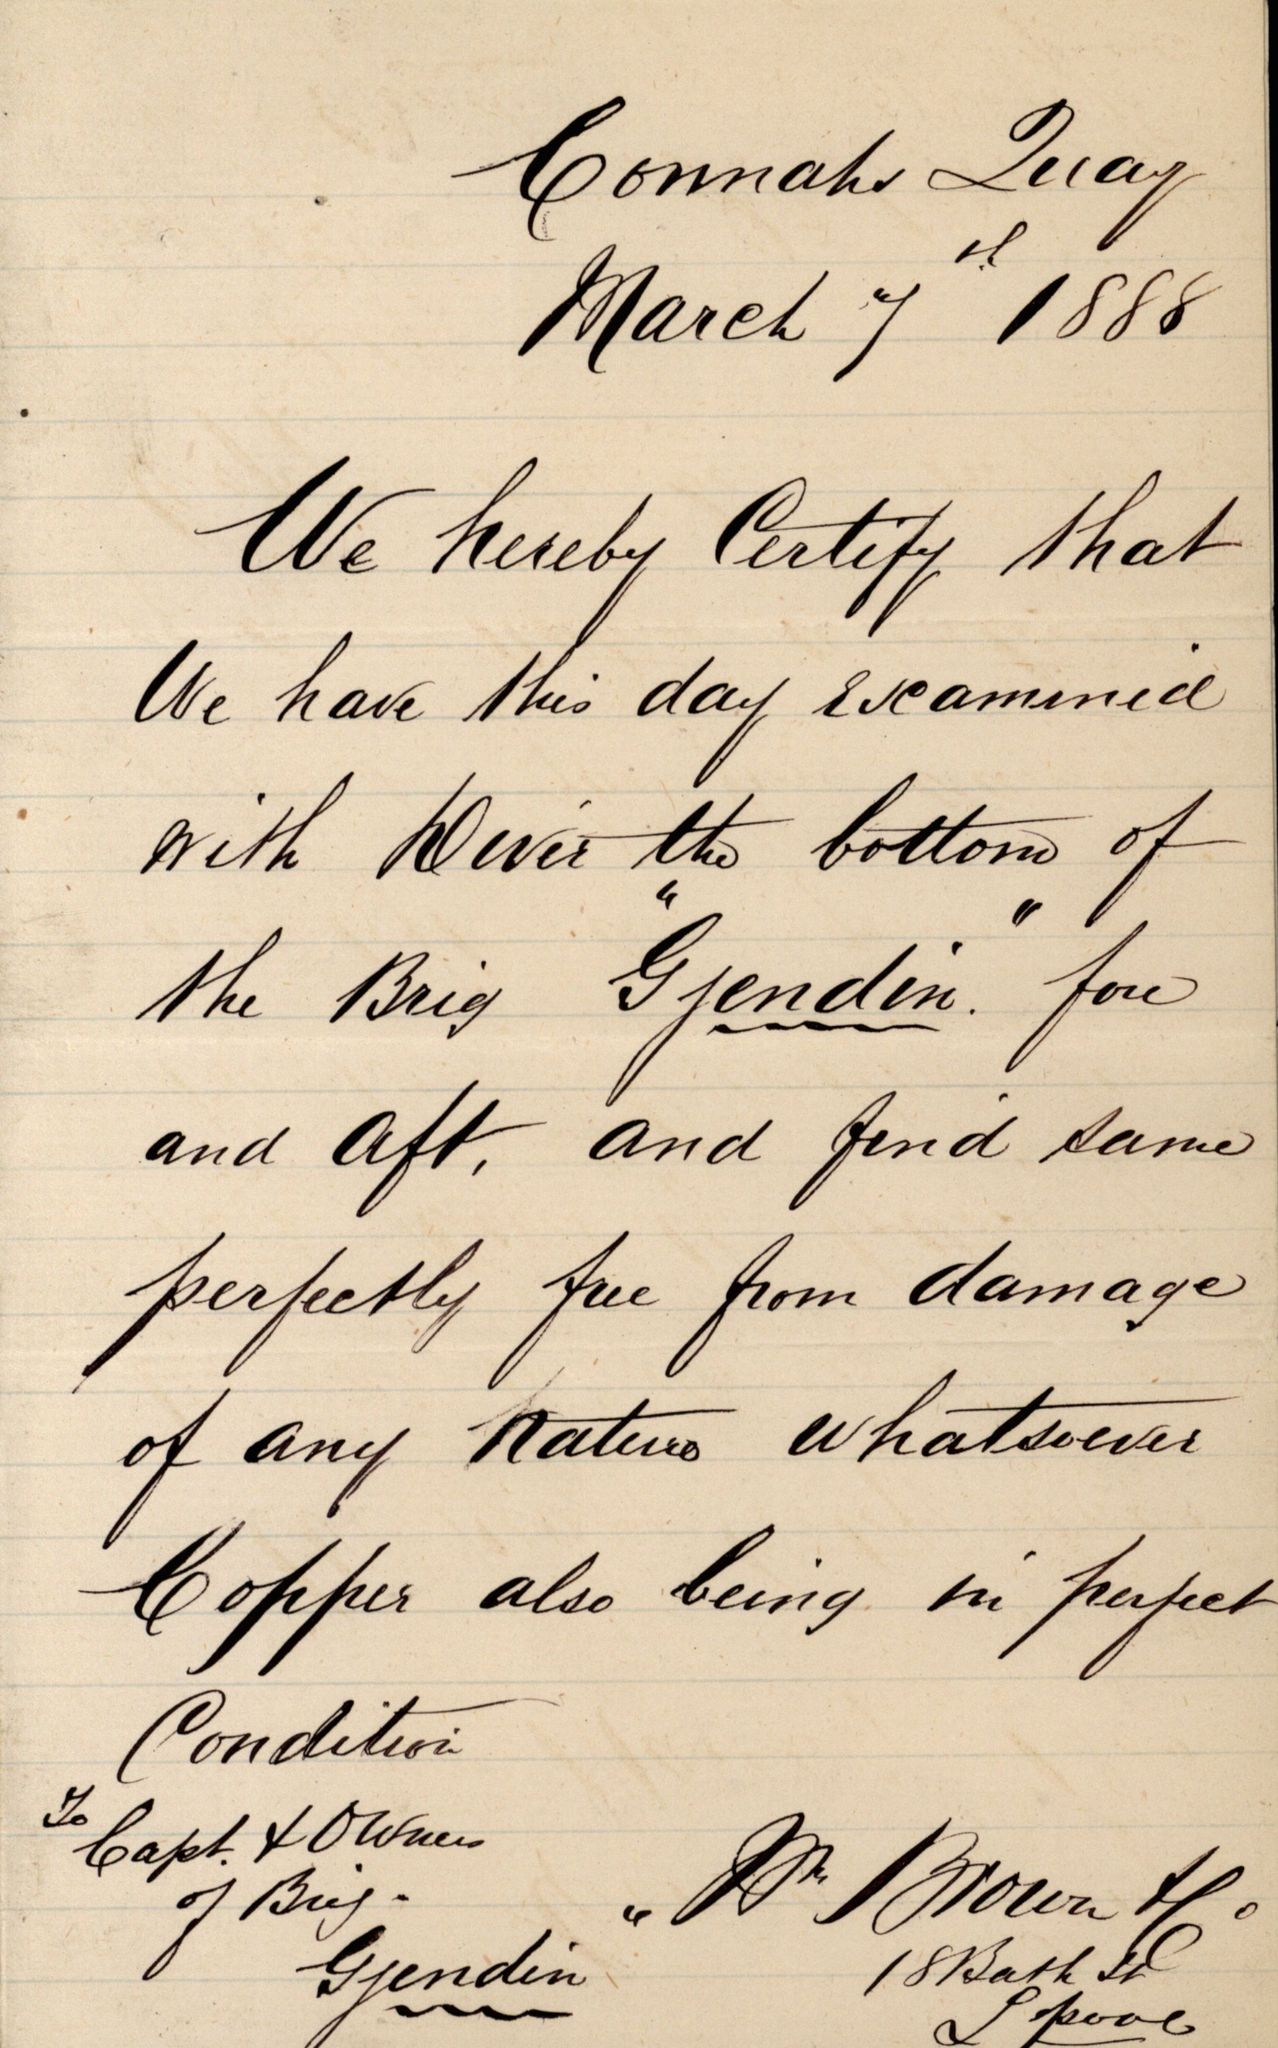 Connahs Quay
March 7th 1888
We hereby Certify that
We have this day examined
with Diver the bottom of
the Brig "Gjendin." fore
and aft, and find same
perfectly free from damage
of any nature whatsoever
Copper also being in perfect
Condition
To
Capt. & Owners
of Brig.
Gjendin
"Wm Brown & Co
18 Bath St
Lpool